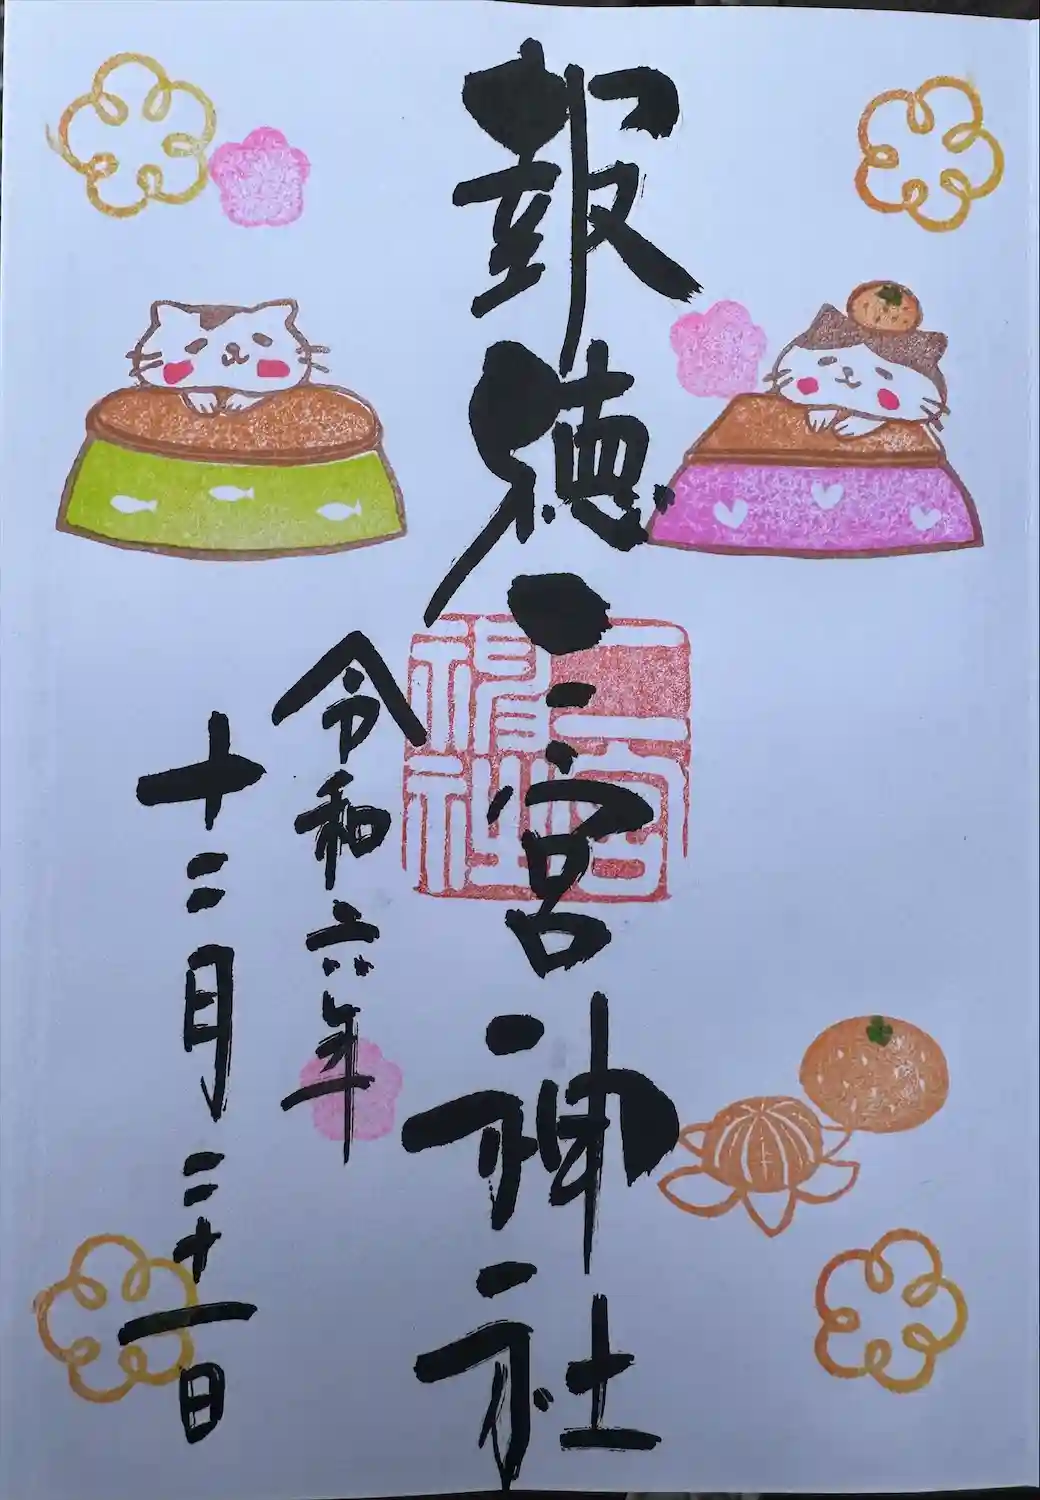 報徳二宮神社
令和六年
十二月二十一日
二宮
神社